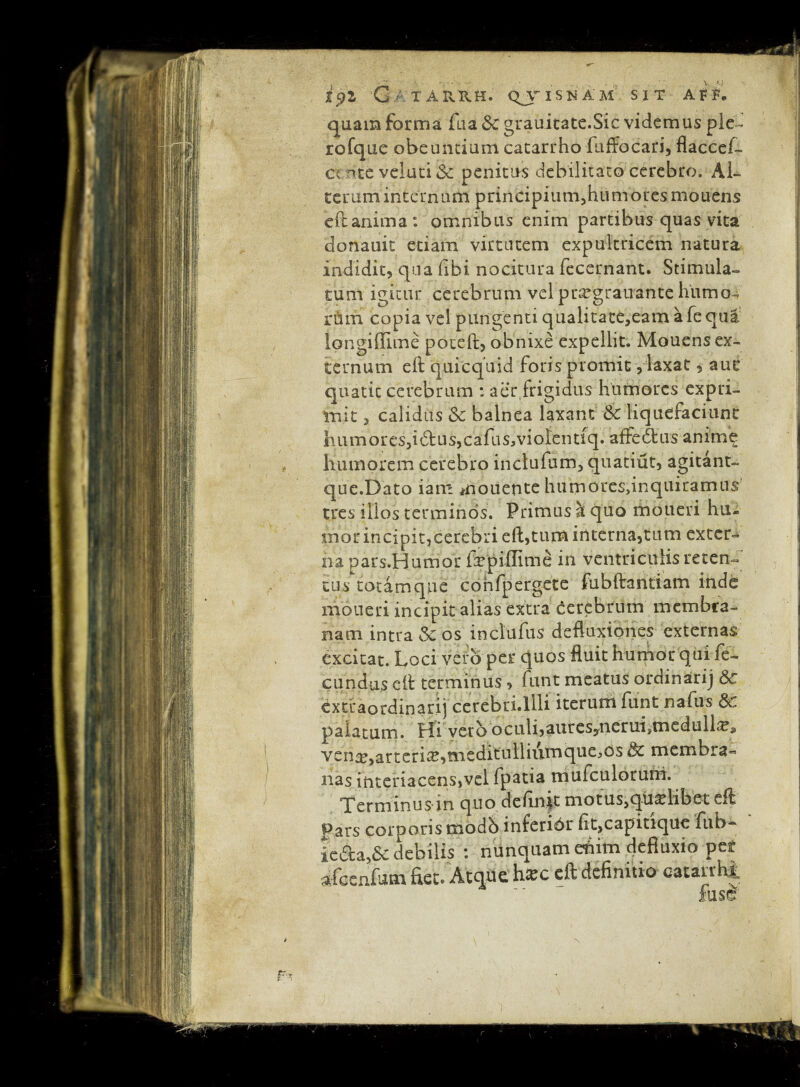 192 CATARRH. QVISNAM SIT AFF.
quam forma ſua & grauitate.Sic videmus ple-
roſque obeuntium catarrho ſuffocari, flacceſ-
cente veluti & penitus debilitato cerebro. Al-
terum internum principium,humores mouens
eſt anima : omnibus enim partibus quas vita
donauit etiam virtutem expultricem natura
indidit, qua ſibi nocitura ſecernant. Stimula-
tum igitur cerebrum vel prægrauante humo-
rûm copia vel pungenti qualitate,eam à ſe quã
longiſſimè poteſt, obnixè expellit. Mouens ex-
ternum eſt quicquid foris promit , laxat , aut
quatit cerebrum : aër frigidus humores expri-
mit , calidus & balnea laxant & liquefaciunt
humores,ictus,caſus,violentíq. affectus animę
humorem cerebro incluſum, quatiũt, agitánt-
que.Dato iam mouente humores,inquiramus
tres illos terminos. Primus à quo moueri hu-
mor incipit,cerebri eſt,tum interna,tum exter-
na pars.Humor ſæpiſſimè in ventriculis reten-
tus totámque conſpergete ſubſtantiam inde
moueri incipit alias extra cerebrum membra-
nam intra & os incluſus defluxiones externas
excitat. Loci verò per quos fluit humor qui ſe-
cundus eſt terminus , ſunt meatus ordinarij &
extraordinarij cerebri.Illi iterum ſunt naſus &
palatum. Hi verò oculi,aures,nerui,medullæ,
venæ,arteriæ,meditulliúmque,os & membra-
nas interiacens,vel ſpatia muſculorum.
Terminus in quo definit motus,quælibet eſt
pars corporis modò inferiór ſit,capitique ſub-
iecta,& debilis : nunquam enim defluxio per
aſcenſum fiet. Atque hæc eſt definitio catarrhi
fusè